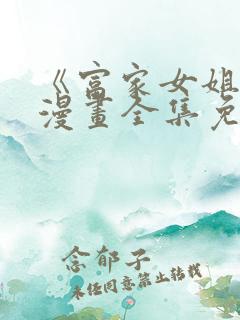 《富家女姐
漫畫全集免
念郁子
未经同意禁止转载